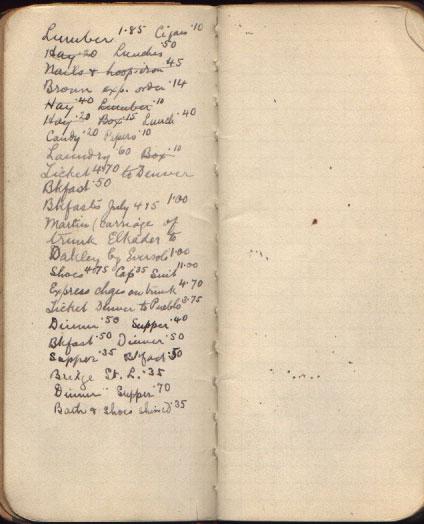 Lumber 1.85 Cigars .10
Hay .20 Lunches .50
Nails & hoop iron .45
Brown exp. order .14
Hay .40 Lumber .10
Hay .20 Box .15 Lunch .40
Candy .20 Papers .10
Laundry .60 Box .10
Ticket 4.70 to Denver
Bkfast .50
Bkfasts July 4 & 5 1.00
Martin (carriage of
trunk Elkader to
Oakley by Eversole 1.00
Shoes 4.75 Cap .35 Suit 11.00
Express chges on trunk 4.70
Ticket Denver to Pueblo 3.75
Dinner .50 Supper .40
Bkfast .50 Dinner .50
Supper .35 Bkfast .50
Bridge St. L. .35
Dinner Supper .70
Bath & shoes shined .35